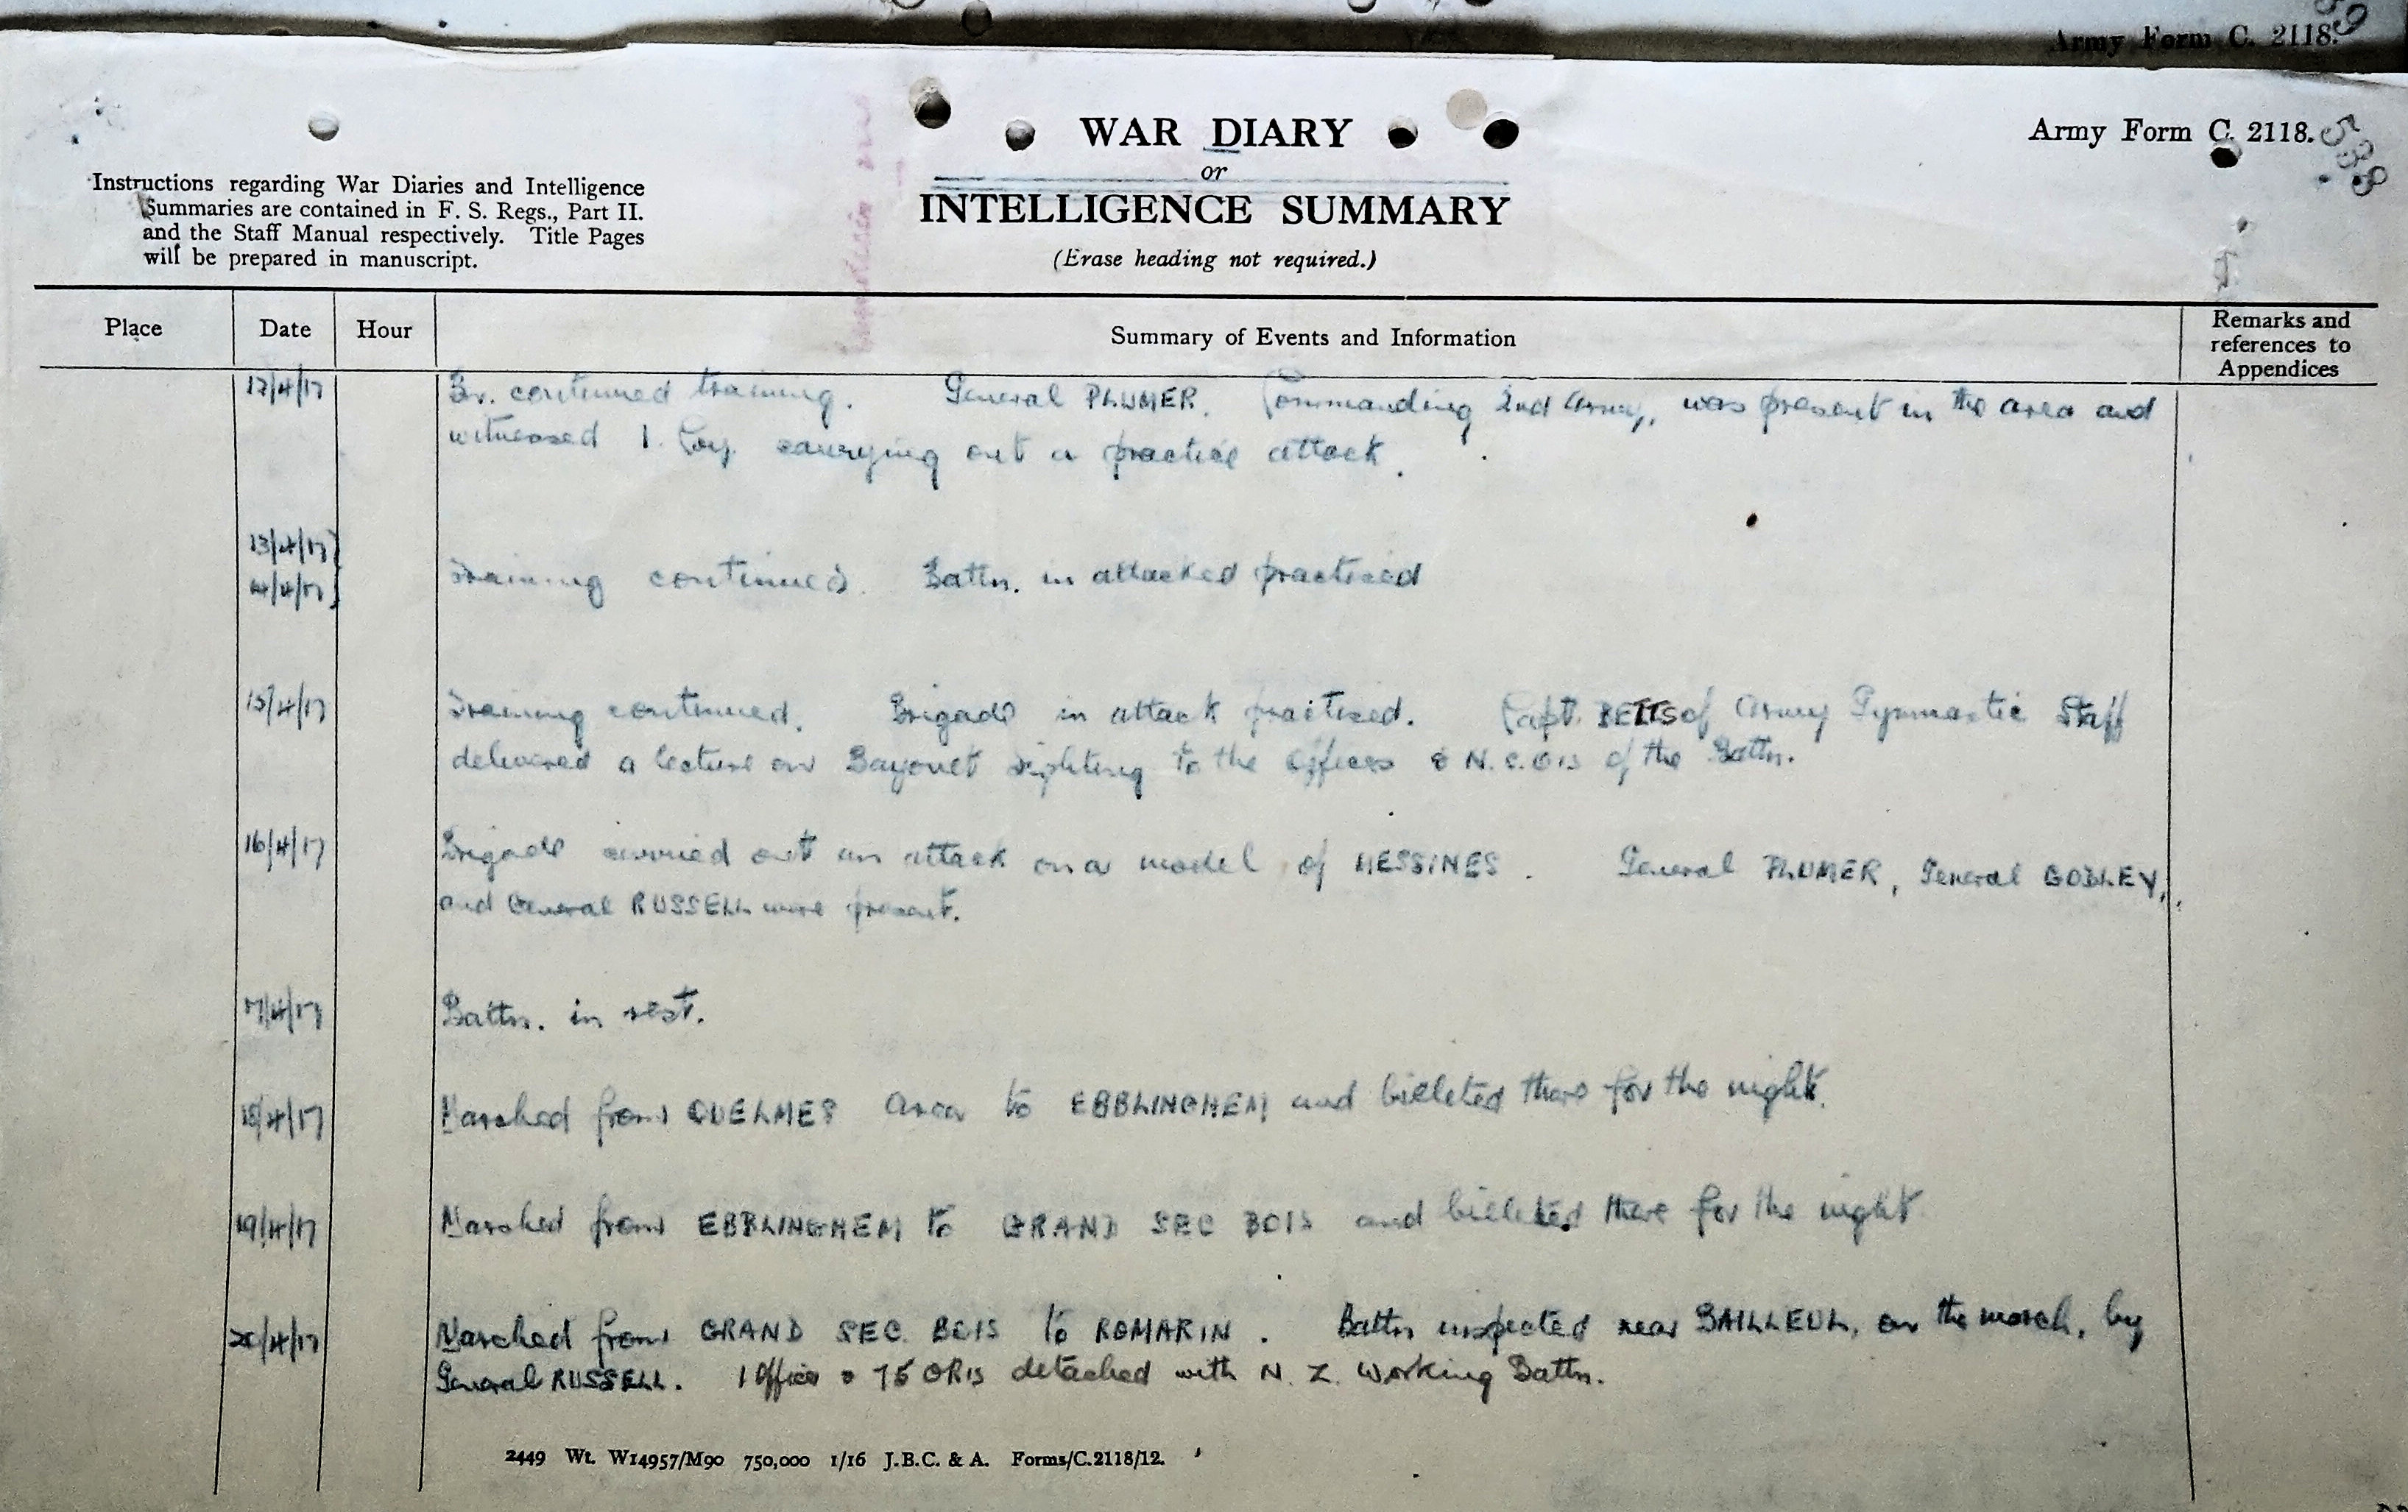 Army Form C. 2118.
WAR DIARY
or
INTELLIGENCE SUMMARY
(Erase heading not required.)
Army Form C. 2118.
538
Instructions regarding War Diaries and Intelligence
Summaries are contained in F. S. Regs., Part II.
and the Staff Manual respectively. Title Pages
will be prepared in manuscript.
Place Date Hour Summary of Events and Information Remarks and references to Appendices
12/4/17 Bn. continued training. General PLUMER, Commanding 2nd Army, was present in the area and
witnessed 1. Coy. carrying out a practice attack.
13/4/17}
14/4/17} Training continued. Battn. in attacked practised
15/4/17 Training continued. Brigade in attack practised. Capt. BETTS of Army Gymnastic Staff
delivered a lecture on Bayonet fighting to the Officers & N.C.O's of the Battn.
16/4/17 Brigade carried out an attack on a model of MESSINES. General PLUMER, General GODLEY,
and General RUSSELL were present.
17/4/17 Battn. in rest.
18/4/17 Marched from QUELMES area to EBBLINGHEM and billeted there for the night.
19/4/17 Marched from EBBLINGHEM to GRAND SEC BOIS and billeted there for the night
20/4/17 Marched from GRAND SEC BOIS to ROMARIN. Battn inspected near BAILLEUL, on the march, by
General RUSSELL. 1 Officer & 75 OR's detached with N. Z. Working Battn.
2449 Wt. W14957/M90 750,000 1/16 J.B.C. & A. Forms/C.2118/12.